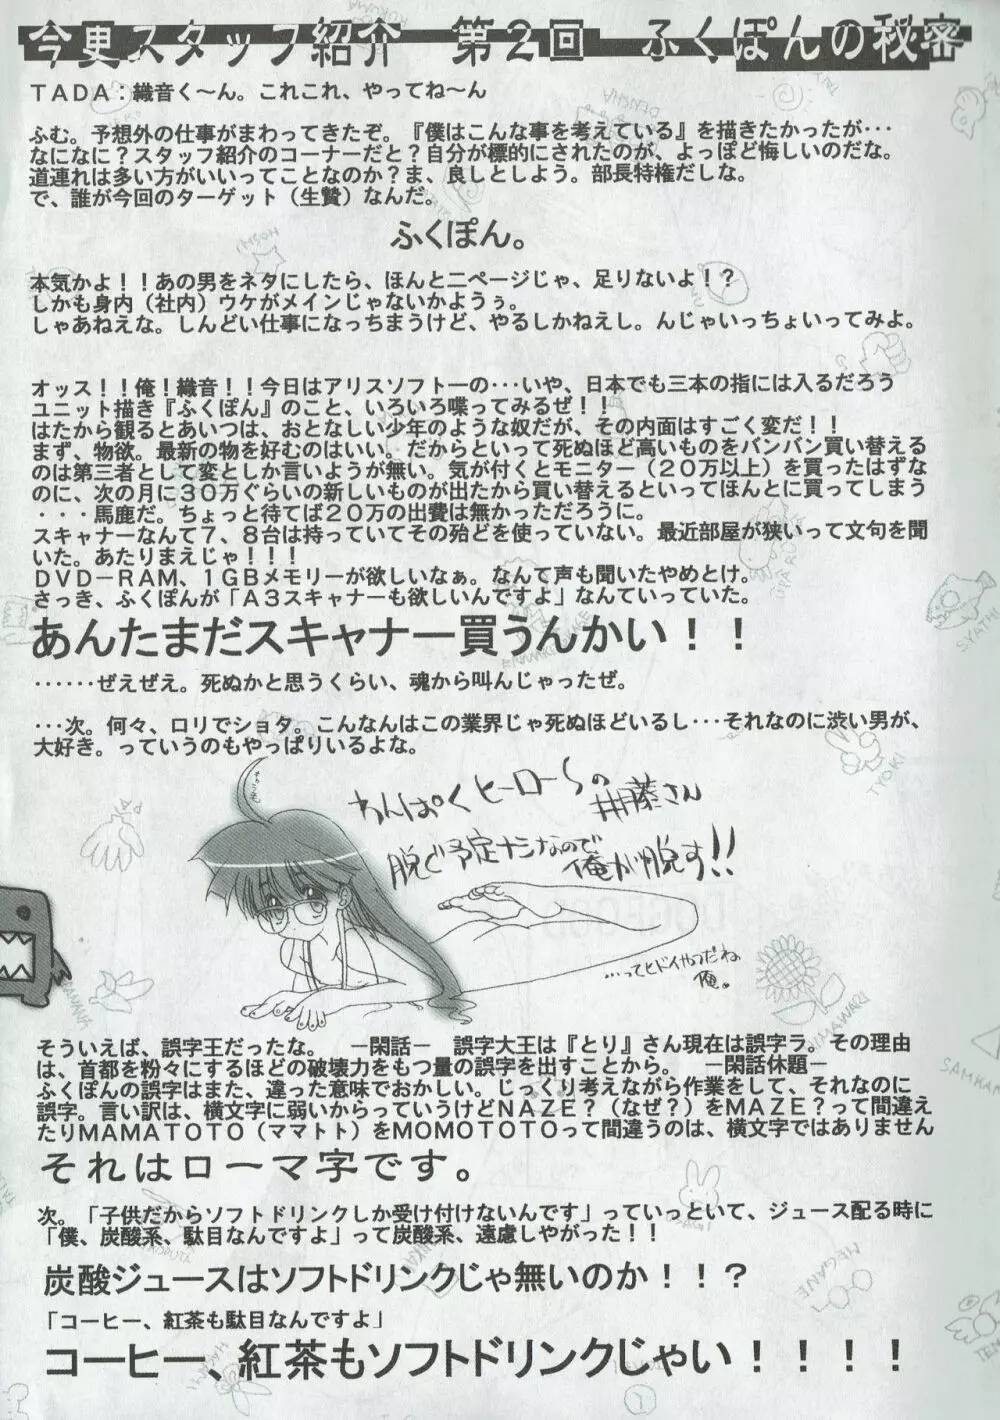 今更スタッフ紹介　第２回　ふくぽんの秘密
ＴＡＤＡ：織音く～ん。これこれ、やってね～ん
ふむ。予想外の仕事がまわってきたぞ。『僕はこんな事を考えている』を描きたかったが・・・
なになに？スタッフ紹介のコーナーだと？自分が標的にされたのが、よっぽど悔しいのだな。
道連れは多い方がいいってことなのか？ま、良しとしよう。部長特権だしな。
で、誰が今回のターゲット（生贄）なんだ。
ふくぽん。
本気かよ！！あの男をネタにしたら、ほんと二ページじゃ、足りないよ！？
しかも身内（社内）ウケがメインじゃないかようぅ。
しゃあねえな。しんどい仕事になっちまうけど、やるしかねえし。んじゃいっちょいってみよ。
オッス！！俺！織音！！今日はアリスソフト一の・・・いや、日本でも三本の指には入るだろう
ユニット描き『ふくぽん』のこと、いろいろ喋ってみるぜ！！
はたから観るとあいつは、おとなしい少年のような奴だが、その内面はすごく変だ！！
まず、物欲。最新の物を好むのはいい。だからといって死ぬほど高いものをバンバン買い替える
のは第三者として変としか言いようが無い。気が付くとモニター（２０万以上）を買ったはずな
のに、次の月に３０万ぐらいの新しいものが出たから買い替えるといってほんとに買ってしまう
・・・馬鹿だ。ちょっと待てば２０万の出費は無かっただろうに。
スキャナーなんて７、８台は持っていてその殆どを使っていない。最近部屋が狭いって文句を聞
いた。あたりまえじゃ！！！
ＤＶＤ－ＲＡＭ、１ＧＢメモリーが欲しいなぁ。なんて声も聞いたやめとけ。
さっき、ふくぽんが「Ａ３スキャナーも欲しいんですよ」なんていっていた。
あんたまだスキャナー買うんかい！！
・・・・・・ぜえぜえ。死ぬかと思うくらい、魂から叫んじゃったぜ。
・・・次。何々、ロリでショタ。こんなんはこの業界じゃ死ぬほどいるし・・・それなのに渋い男が、
大好き。っていうのもやっぱりいるよな。
わんぱくヒーローSの
井藤さん
脱ぐ予定ナシなので
俺が脱す!!
…ってヒドイやつだね
俺。
そういえば、誤字王だったな。　－閑話－　誤字大王は『とり』さん現在は誤字ラ。その理由
は、首都を粉々にするほどの破壊力をもつ量の誤字を出すことから。　－閑話休題－
ふくぽんの誤字はまた、違った意味でおかしい。じっくり考えながら作業をして、それなのに
誤字。言い訳は、横文字に弱いからっていうけどＮＡＺＥ？（なぜ？）をＭＡＺＥ？って間違え
たりＭＡＭＡＴＯＴＯ（ママトト）をＭＯＭＯＴＯＴＯって間違うのは、横文字ではありません
それはローマ字です。
次。「子供だからソフトドリンクしか受け付けないんです」っていっといて、ジュース配る時に
「僕、炭酸系、駄目なんですよ」って炭酸系、遠慮しやがった！！
炭酸ジュースはソフトドリンクじゃ無いのか！！？
「コーヒー、紅茶も駄目なんですよ」
コーヒー、紅茶もソフトドリンクじゃい！！！！
HOSHI
DENSHA
TYOKI
HIMAWARI
MEGANE